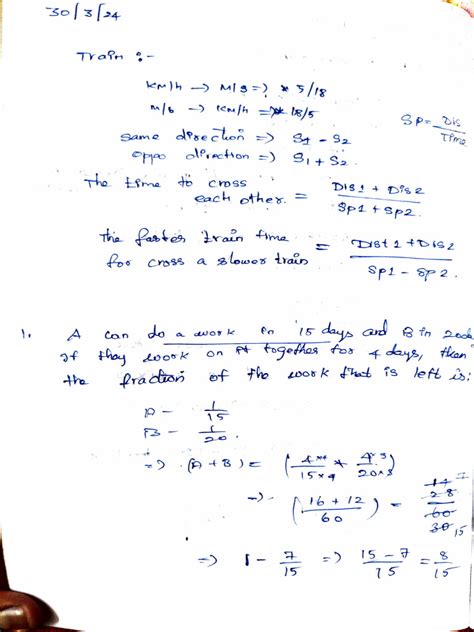 30/3/24
Train :-
KM/h -> M/s => * 5/18
M/s -> KM/h => * 18/5
Sp = Dis / Time
same direction => S1 - S2
oppo direction => S1 + S2.
The time to cross
each other. = Dis1 + Dis2 / Sp1 + Sp2.
The faster train time
for cross a slower train = Dist1 + Dis2 / Sp1 - Sp2.
1. A can do a work in 15 days and B in 20
If they work on it together for 4 days, then
the fraction of the work that is left is:
A - 1/15
B - 1/20.
=> (A + B) = (4*4 / 15*4 + 4*3 / 20*3)
=> (16 + 12 / 60) = 14 7 28 60 30 15
=> 1 - 7/15 => 15 - 7 / 15 = 8/15